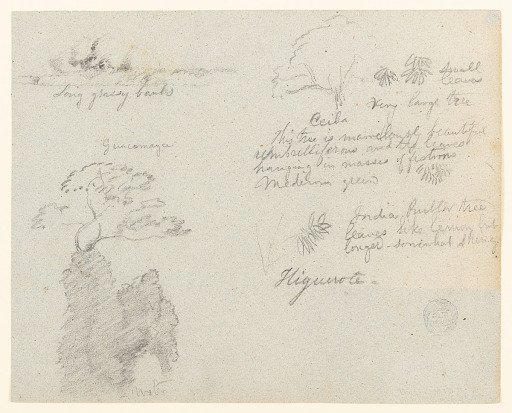 Long grassy banks
Guacamaya
Water
small
leaves
Very large tree
Ceiba
This tree is marvelously beautiful
umbrelliferous and the leaves
hanging in masses of festoons
Medium green
India Rubber tree
leaves like lemon but
longer - somewhat shiney
Higuerote -